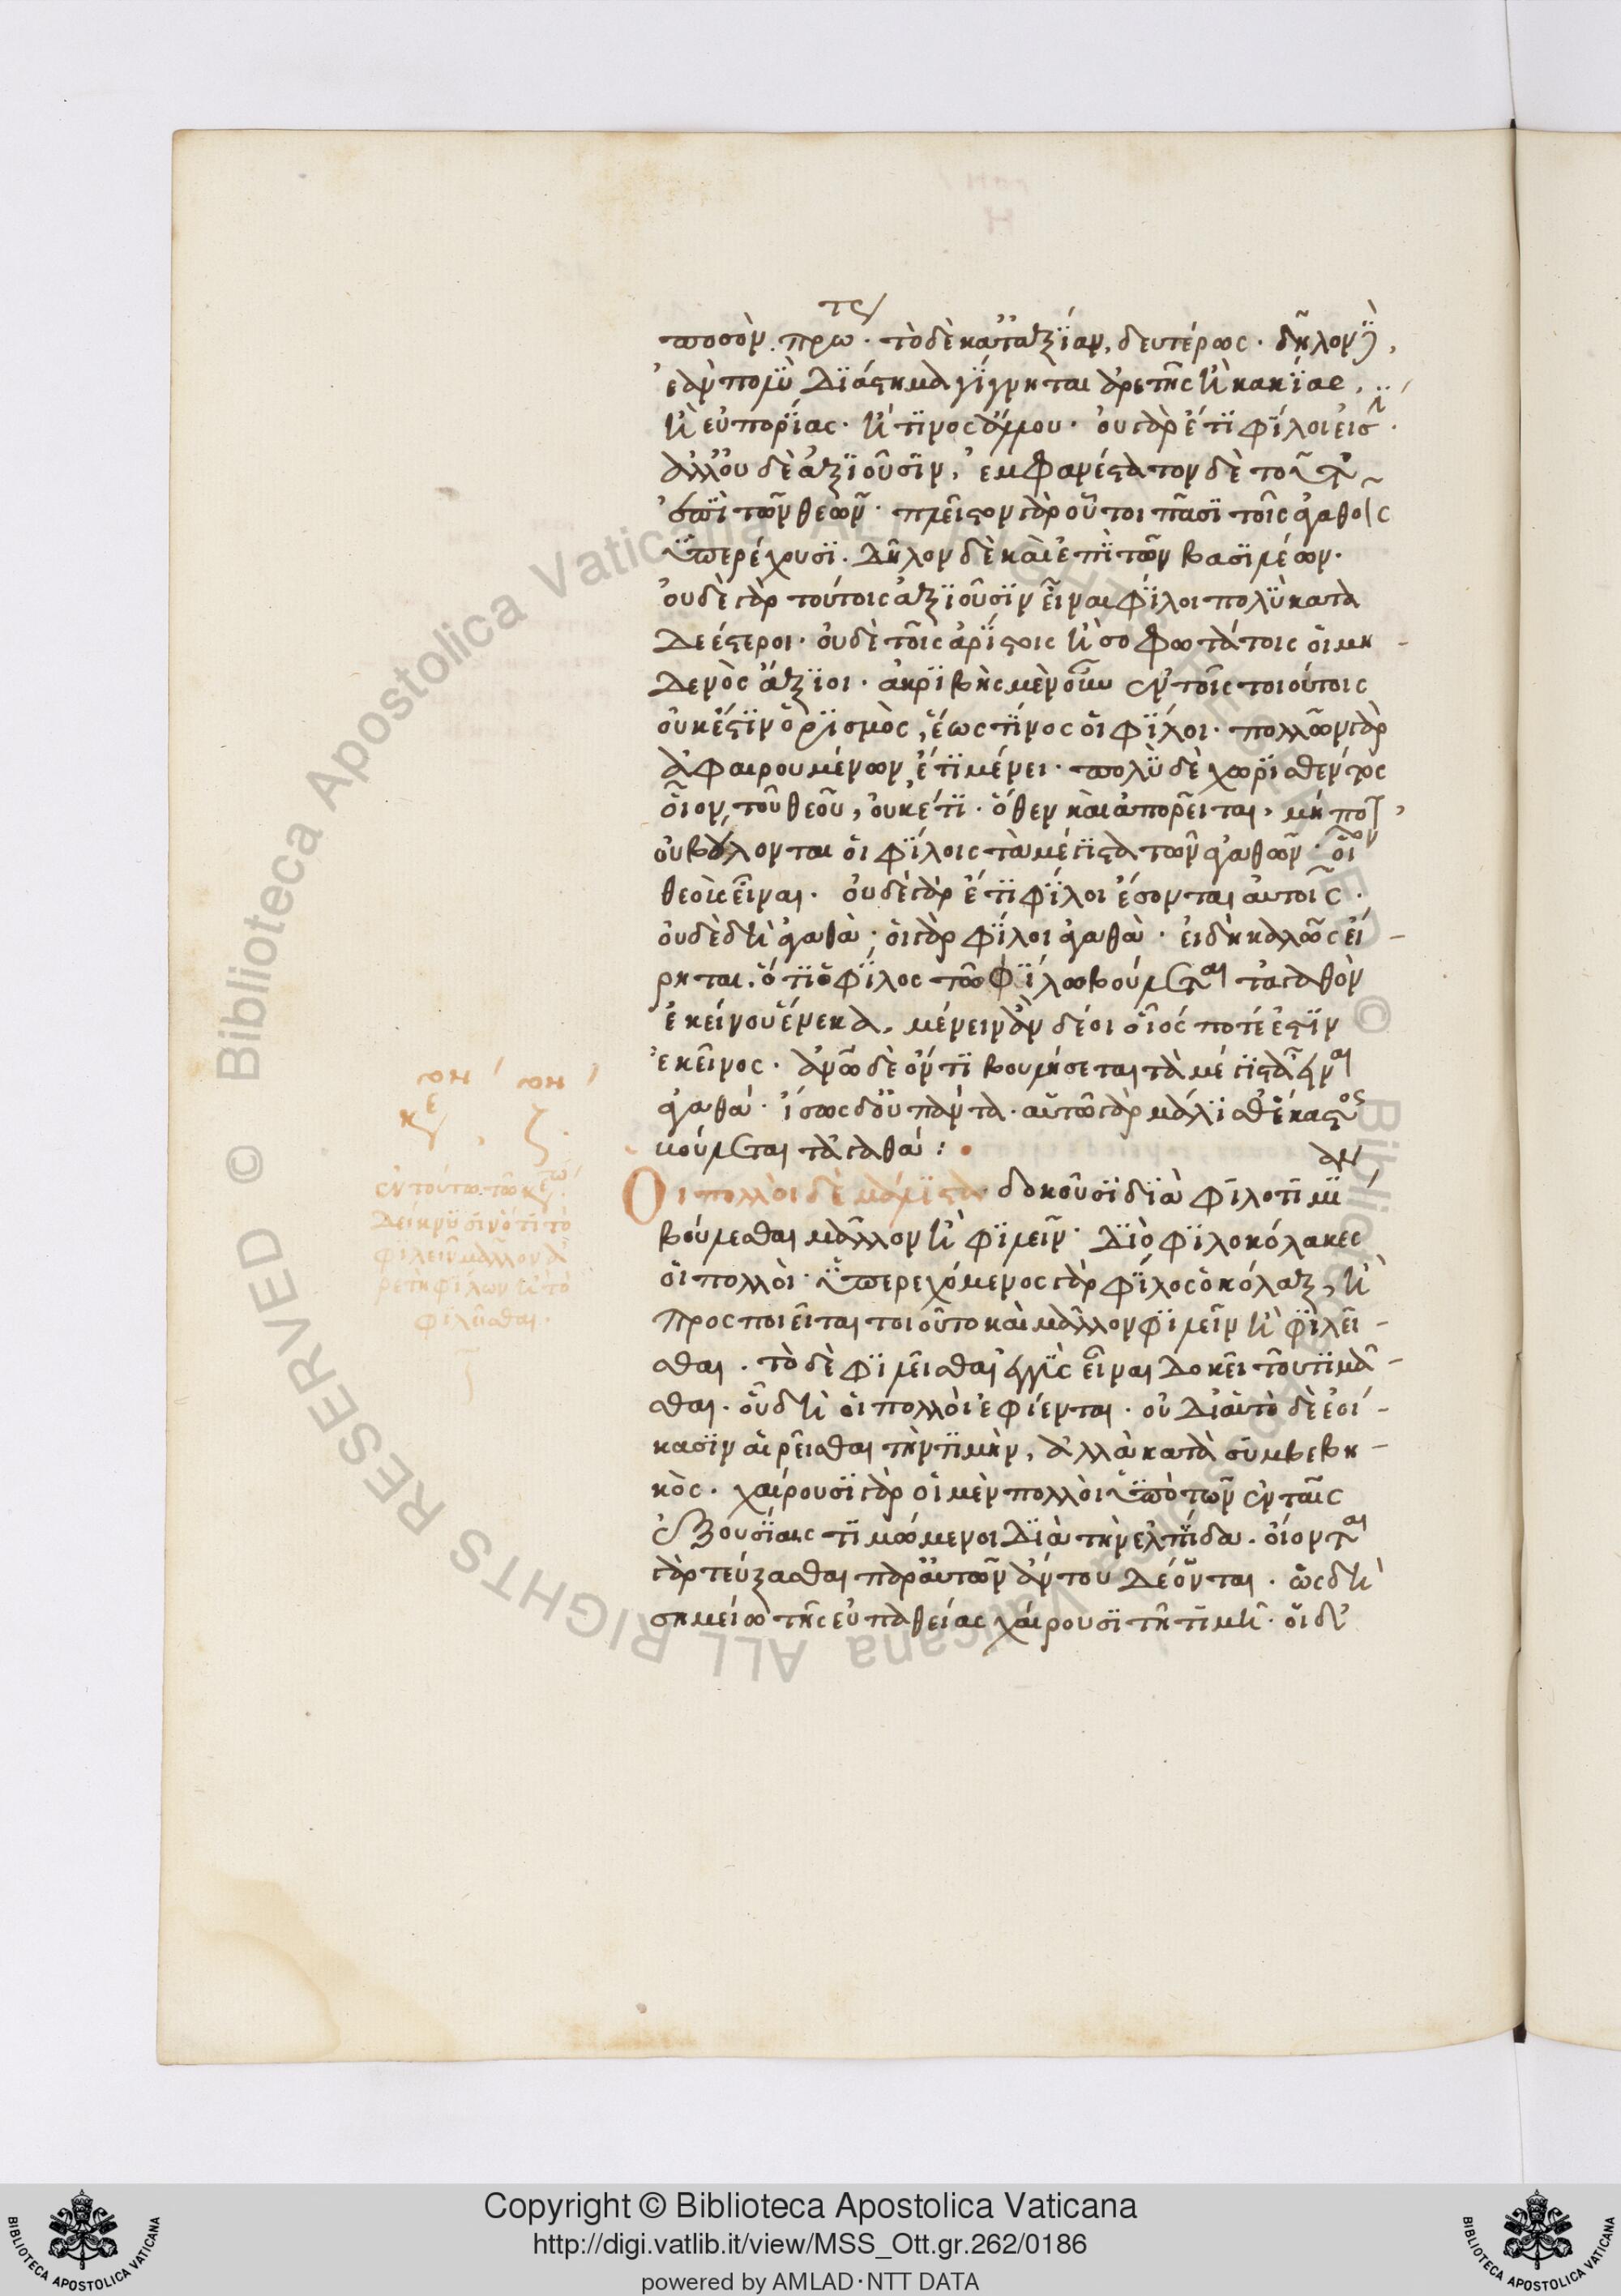 ποσὸν πρώτως· τὸ δὲ κατ' ἀξίαν, δευτέρως. δῆλον δὲ,
ἐὰν πολὺ διάστημα γίγνηται ἀρετῆς ἢ κακίας,
ἢ εὐπορίας. ἤ τινος ἄλλου. οὐ γὰρ ἔτι φίλοι εἰσὶν.
ἀλλ' οὐδὲ ἀξιοῦσιν, ἐμφανέστατον δὲ τοῦτ'
ἐπὶ τῶν θεῶν. πλεῖστον γὰρ οὗτοι πᾶσι τοῖς ἀγαθοῖς
ὑπερέχουσι. δῆλον δὲ καὶ ἐπὶ τῶν βασιλέων.
οὐδὲ γὰρ τούτοις ἀξιοῦσιν εἶναι φίλοι πολὺ κατα
δεέστεροι. οὐδὲ τοῖς ἀρίστοις ἢ σοφωτάτοις οἱ μη-
δενὸς ἄξιοι. ἀκριβὴς μὲν οὖν ἐν τοῖς τοιούτοις
οὐκ ἔστιν ὁρισμὸς, ἕως τίνος οἱ φίλοι. πολλῶν γὰρ
ἀφαιρουμένων, ἔτι μένει. πολὺ δὲ χωρισθέντος
οἷον τοῦ θεοῦ, οὐκέτι. ὅθεν καὶ ἀπορεῖται, μή ποτ'
οὐ βούλονται οἱ φίλοις τὰ μέγιστα τῶν ἀγαθῶν. οἷον
θεοὺς εἶναι. οὐδὲ γὰρ ἔτι φίλοι ἔσονται αὐτοῖς.
οὐδὲ δὴ ἀγαθὰ· οἱ γὰρ φίλοι ἀγαθὰ. εἰ δὴ καλῶς εἴ-
ρηται, ὅτι ὁ φίλος τῶ φίλω βούλεται τἀγαθὸν
ἐκείνου ἕνεκα, μένειν ἂν δέοι οἷός ποτέ ἐστιν
ἐκεῖνος. ἀνω δὲ ὄντι βουλήσεται τὰ μέγιστα εἶναι
ἀγαθά. ἴσως δ' οὐ πάντα. αὑτῶ γὰρ μάλισθ' ἕκαστος
βούλεται τἀγαθά:
Οι πολλοὶ δὲ μάλιστα δοκοῦσι διὰ φιλοτιμίαν
βούλεσθαι μᾶλλον ἢ φιλεῖν. διὸ φιλοκόλακες
οἱ πολλοὶ. ὑπερεχόμενος γὰρ φίλος ὁ κόλαξ, ἢ
προσποιεῖται τοιοῦτο καὶ μᾶλλον φιλεῖν ἢ φιλεῖ-
σθαι. τὸ δὲ φιλεῖσθαι ἐγγὺς εἶναι δοκεῖ τοῦ τιμᾶ-
σθαι. οὗ δὴ οἱ πολλοὶ ἐφίενται. οὐ δι' αὐτὸ δὲ ἐοί-
κασιν αἱρεῖσθαι τὴν τιμὴν, ἀλλὰ κατὰ συμβεβη-
κὸς. χαίρουσι γὰρ οἱ μὲν πολλοὶ ὑπὸ τῶν ἐν ταῖς
ἐξουσίαις τιμώμενοι διὰ τὴν ἐλπίδα. οἴονται
γὰρ τεύξασθαι παρ' αὐτῶν ἄν του δέονται. ὡς δὴ
σημείω τῆς εὐπαθείας χαίρουσι τῆ τιμῆ. οἱ δ'
ἐν τούτω τῶ κε΄
δείκνυσιν ὅτι τὸ
φιλεῖν μᾶλλον ἀ
ρετὴ φίλων ἢ τὸ
φιλεῖσθαι.
Copyright © Biblioteca Apostolica Vaticana
http://digi.vatlib.it/view/MSS_Ott.gr.262/0186
powered by AMLAD·NTT DATA
BIBLIOTECA APOSTOLICA VATICANA
BIBLIOTECA APOSTOLICA VATICANA
© Biblioteca Apostolica Vaticana ALL RIGHTS RESERVED